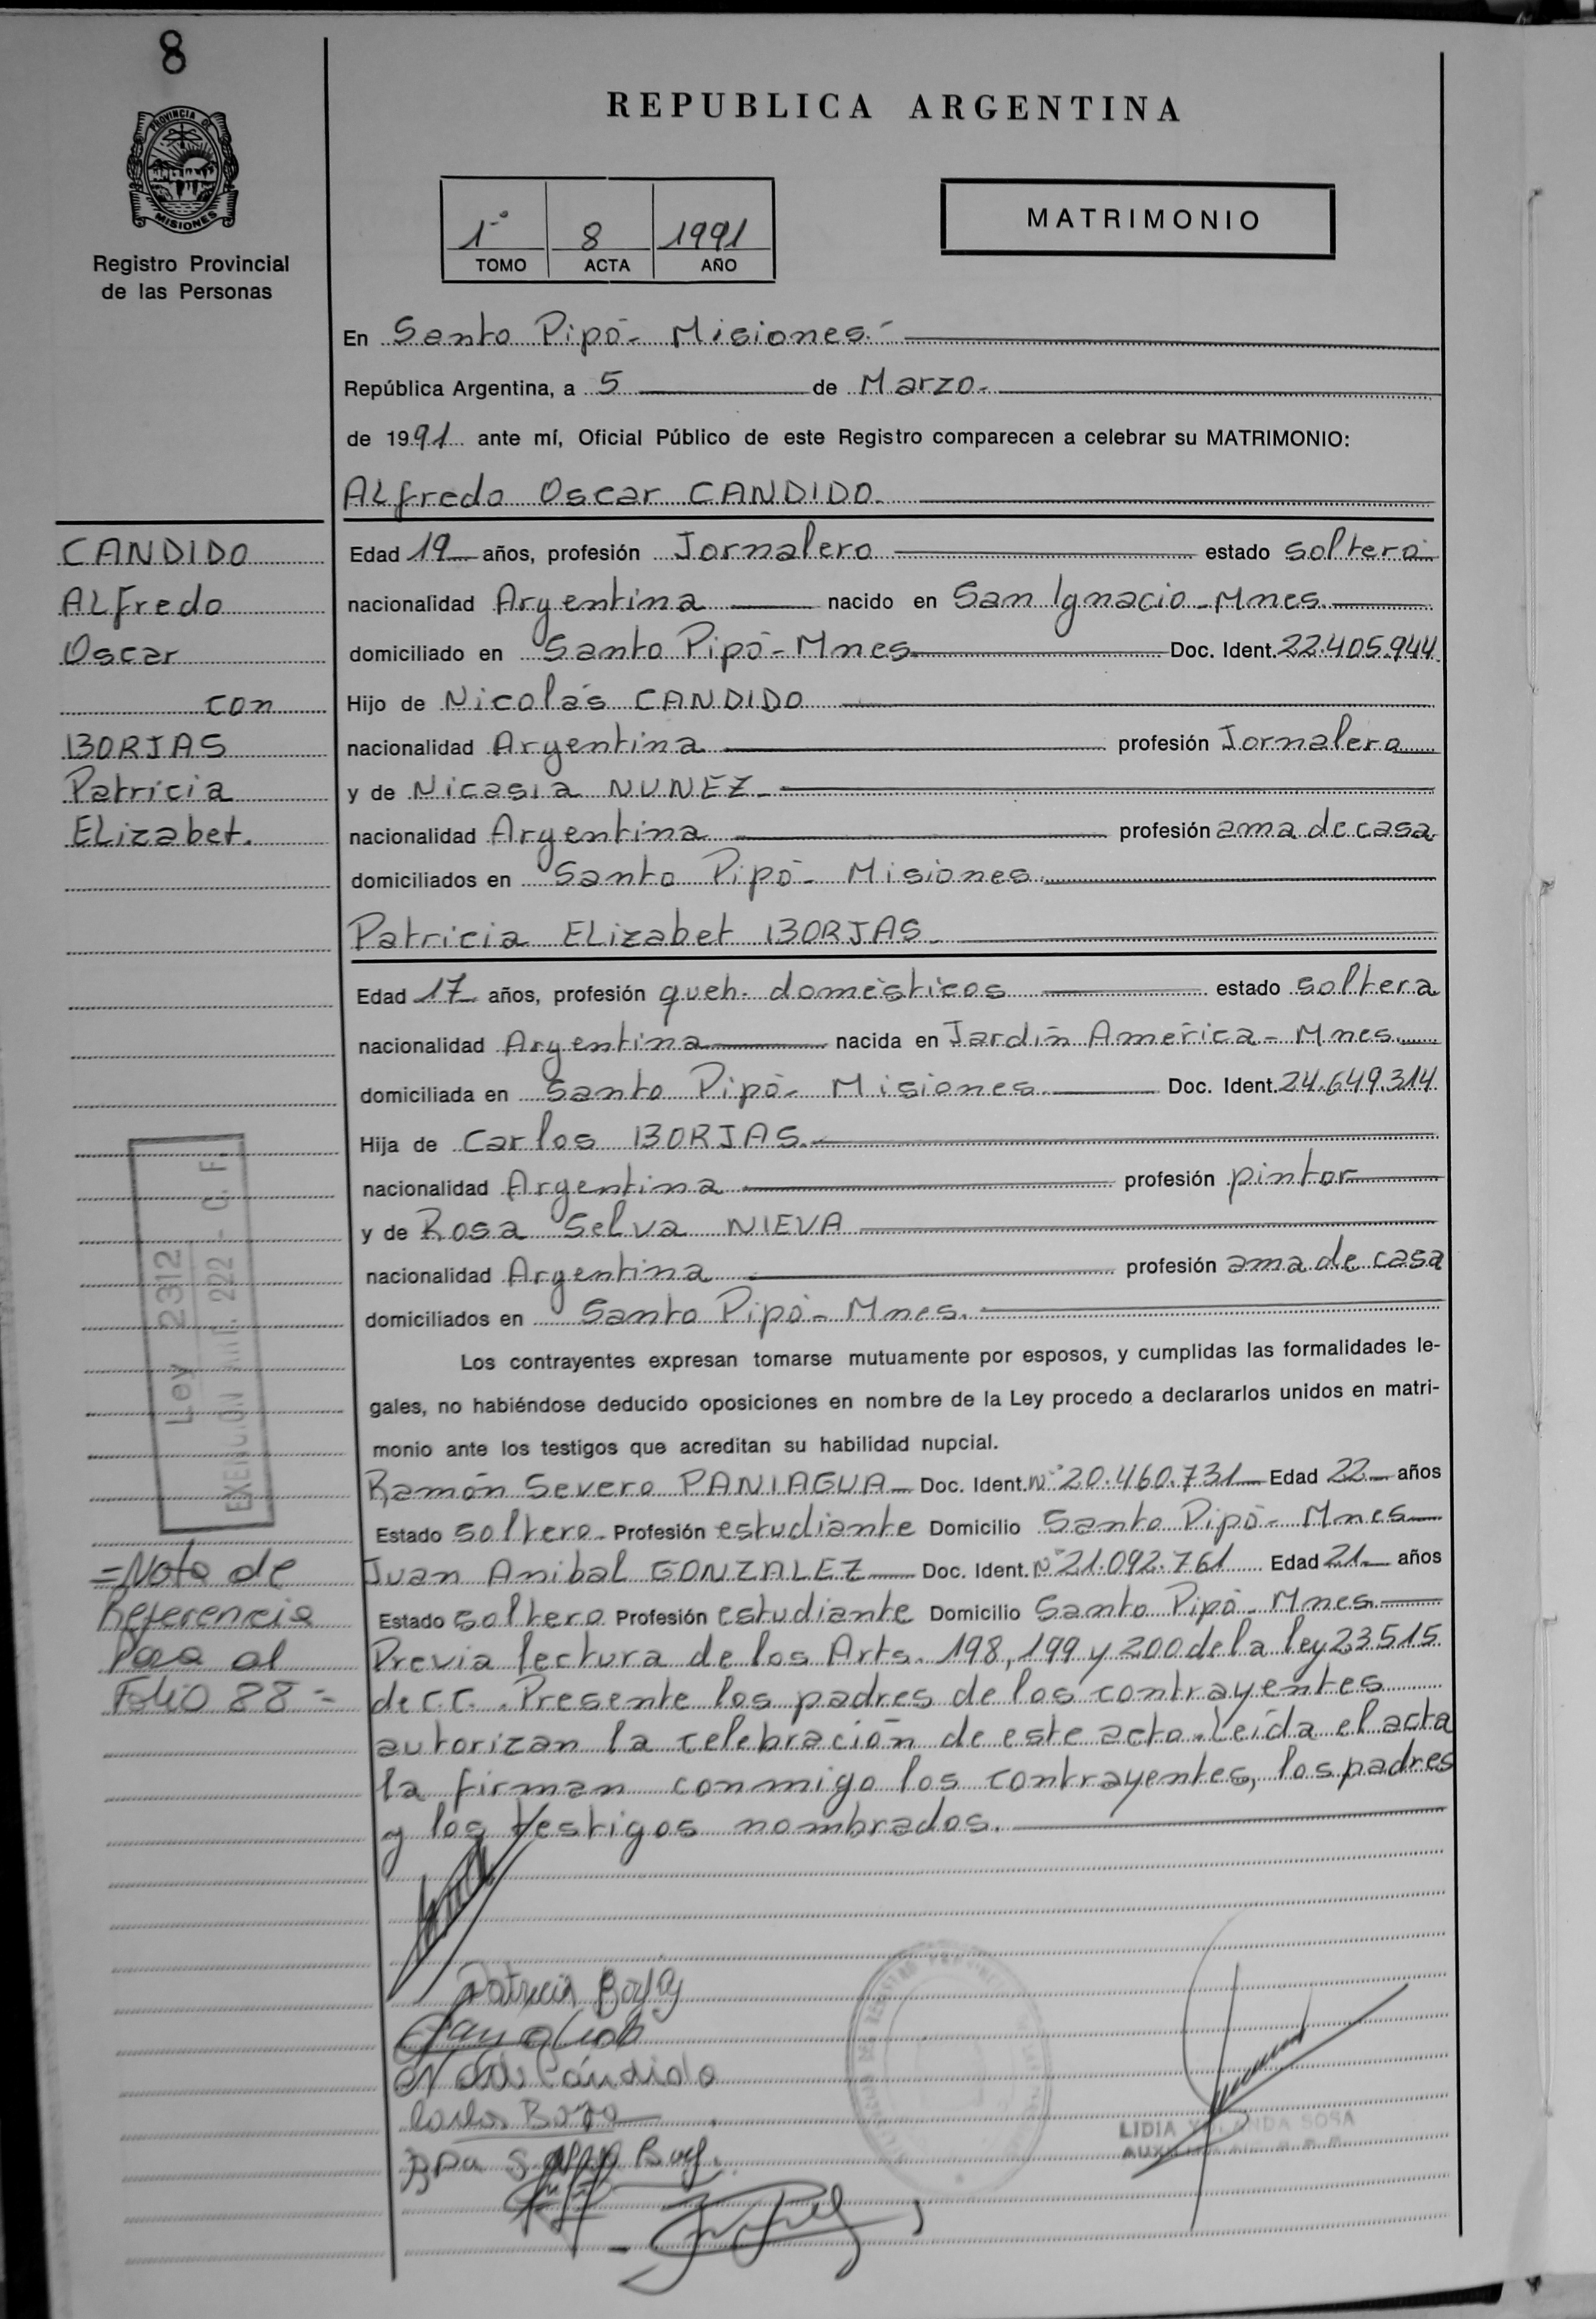 8
PROVINCIA DE
MISIONES
Registro Provincial
de las Personas
REPUBLICA ARGENTINA
1º 8 1991
TOMO ACTA AÑO
MATRIMONIO
En Santo Pipó- Misiones.-
República Argentina, a 5 de Marzo-
de 1991 ante mí, Oficial Público de este Registro comparecen a celebrar su MATRIMONIO:
ALfredo Oscar CANDIDO
CANDIDO
ALfredo
Oscar
con
BORJAS
Patricia
ELizabet.
Edad 19 años, profesión Jornalero estado soltero
nacionalidad Argentina nacido en San Ignacio-Mnes.
domiciliado en Santo Pipó-Mnes Doc. Ident. 22.405.944
Hijo de Nicolás CANDIDO
nacionalidad Argentina profesión Jornalero
y de Nicasia NUNEZ-
nacionalidad Argentina profesión ama de casa
domiciliados en Santo Pipó- Misiones
Patricia ELizabet BORJAS-
Edad 17 años, profesión queh. domésticos estado soltera
nacionalidad Argentina nacida en Jardín América- Mnes.
domiciliada en Santo Pipó- Misiones Doc. Ident. 24.649.314
Hija de Carlos BORJAS.-
nacionalidad Argentina profesión pintor
y de Rosa Selva NIEVA
nacionalidad Argentina profesión ama de casa
domiciliados en Santo Pipó- Mnes.
Los contrayentes expresan tomarse mutuamente por esposos, y cumplidas las formalidades le-
gales, no habiéndose deducido oposiciones en nombre de la Ley procedo a declararlos unidos en matri-
monio ante los testigos que acreditan su habilidad nupcial.
Ley 2312
EXENCION 222 - C. F.
Ramón Severo PANIAGUA Doc. Ident. Nº 20.460.731 Edad 22 años
Estado soltero- Profesión estudiante Domicilio Santo Pipó- Mnes
Juan Anibal GONZALEZ Doc. Ident. Nº 21.092.761 Edad 21 años
Estado soltero Profesión estudiante Domicilio Santo Pipó- Mnes.
=Nota de
Referencia
Pasa al
Folio 88=
Previa lectura de los Arts. 198, 199 y 200 de la ley 23515
de C.C. Presente los padres de los contrayentes
autorizan la celebración de este acto. Leída el acta
la firman conmigo los contrayentes, los padres
y los testigos nombrados.
Patricia
Cándido
Carlos
LIDIA YOLANDA SOSA